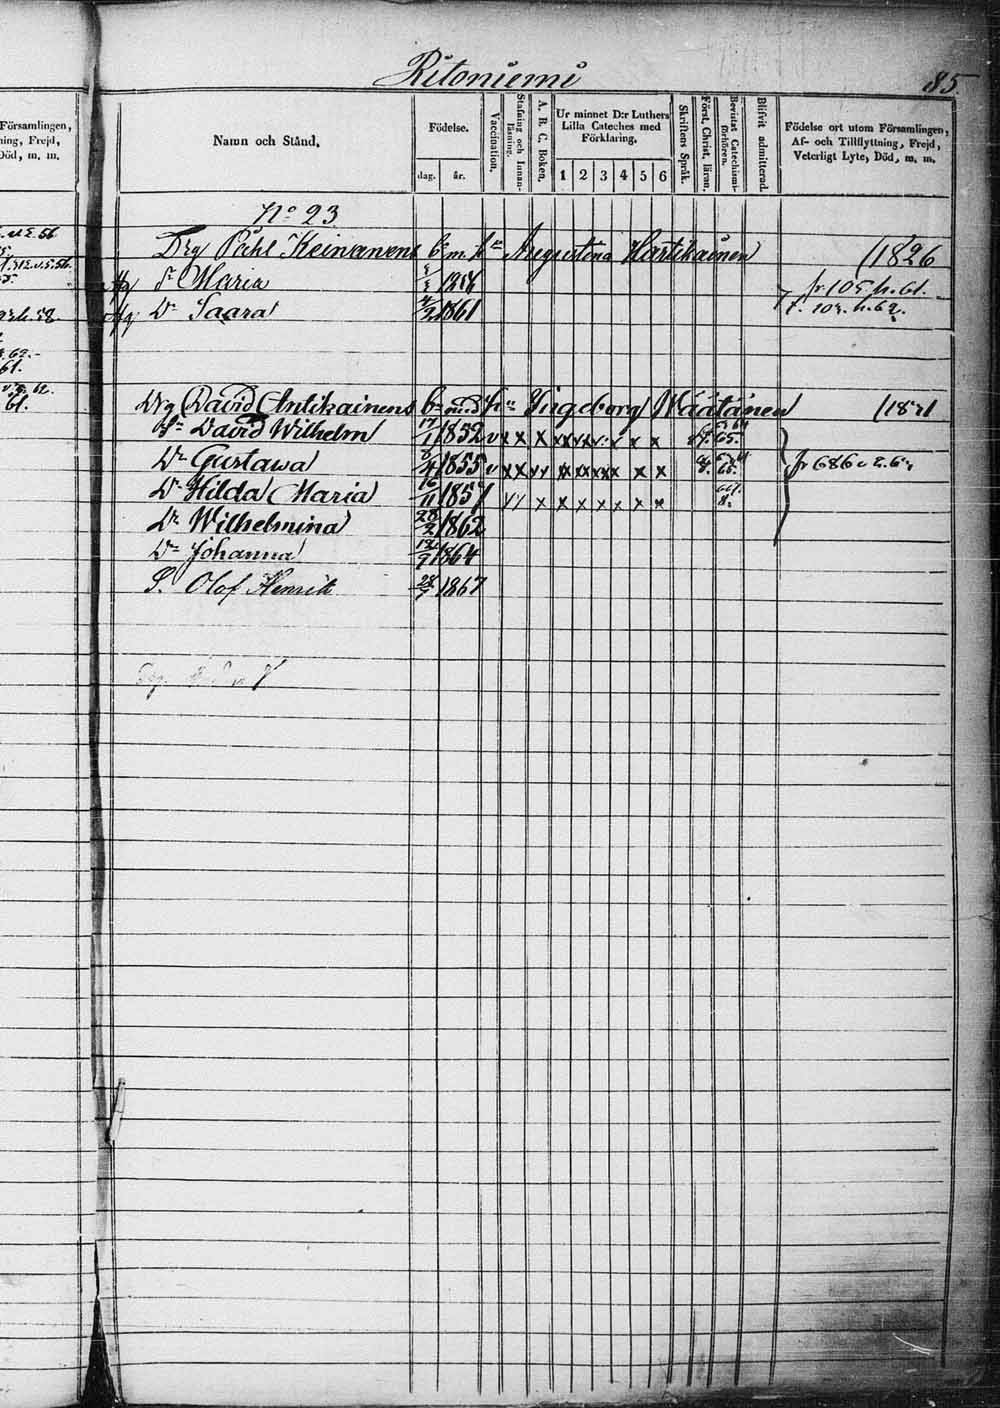 Ritoniemi
85.
Församlingen,
ning, Frejd,
Död, m. m.
Namn och Stånd,
Födelse.
dag.
år.
Vaccination.
Stafning och Innan-
läsning.
A. B. C. Boken.
Ur minnet D:r Luthers
Lilla Cateches med
Förklaring.
1 2 3 4 5 6
Skriftens Språk.
Först. Christ. läran.
Bevistat Catechismi-
förhören.
Blifvit admitterad.
Födelse ort utom Församlingen,
Af- och Tillflyttning, Frejd,
Veterligt Lyte, Död, m. m.
No 23
Drg Påhl Keinänens b. m. h:u Augustina Hartikainen (1826
Maria fr 105. h. 61.
Dr Saara 4/2 1861 f. 103. h. 62.
Drg David Antikainens h:u Ingeborg Väätänen (1871
Sn David Wilhelm 17/1 1852 v x x x 65.
Dr Gustawa 8/4 1855 v x x fr 686
Dr Hilda Maria 16/11 1857 x x x x x x x
Dr Wilhelmina 28/2 1862
Dr Johanna 1864
S. Olof Henrik 28/7 1867